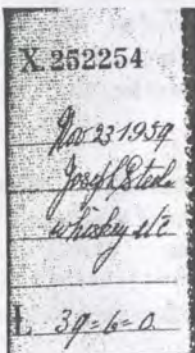 X.252254
Nov 23 1959
Joseph Steel
whiskey etc
L 39=6=0